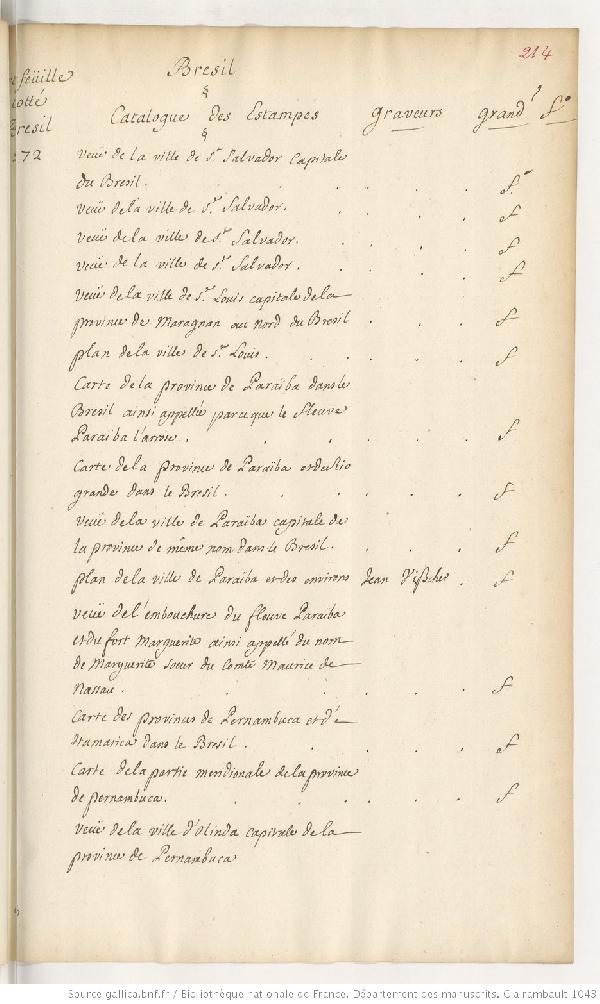 214
Bresil
feüille
cotté
Bresil
72
Catalogue des Estampes Graveurs grandr fo
veüe de la ville de St Salvador Capitale
du Bresil. fo
veüe de la ville de St Salvador. f
veüe de la ville de St Salvador. f
veüe de la ville de St Salvador. f
veüe de la ville de St Louis capitale de la
province de Maragnan au nord du Bresil f
plan de la ville de St Louis. f
Carte de la province de Paraiba dans le
Bresil ainsi appellée parce que le fleuve
Paraiba l'arrose. f
Carte de la province de Paraiba et de Rio
grande dans le Bresil. f
veüe de la ville de Paraiba capitale de
la province de même nom dans le Bresil. f
plan de la ville de Paraiba et des environs Jean Visscher f
veüe de l'embouchure du fleuve Paraiba
et du fort Marguerite ainsi appellé du nom
de Marguerite soeur du Comte Maurice de
Nassau. f
Carte des provinces de Pernambuca et d'e
Itamarica dans le Bresil. f
Carte de la partie meridionale de la province
de pernambuca. f
veüe de la ville d'Olinda capitale de la
province de Pernambuca
Source gallica.bnf.fr / Bibliothèque nationale de France. Département des manuscrits. Clairambault 1043